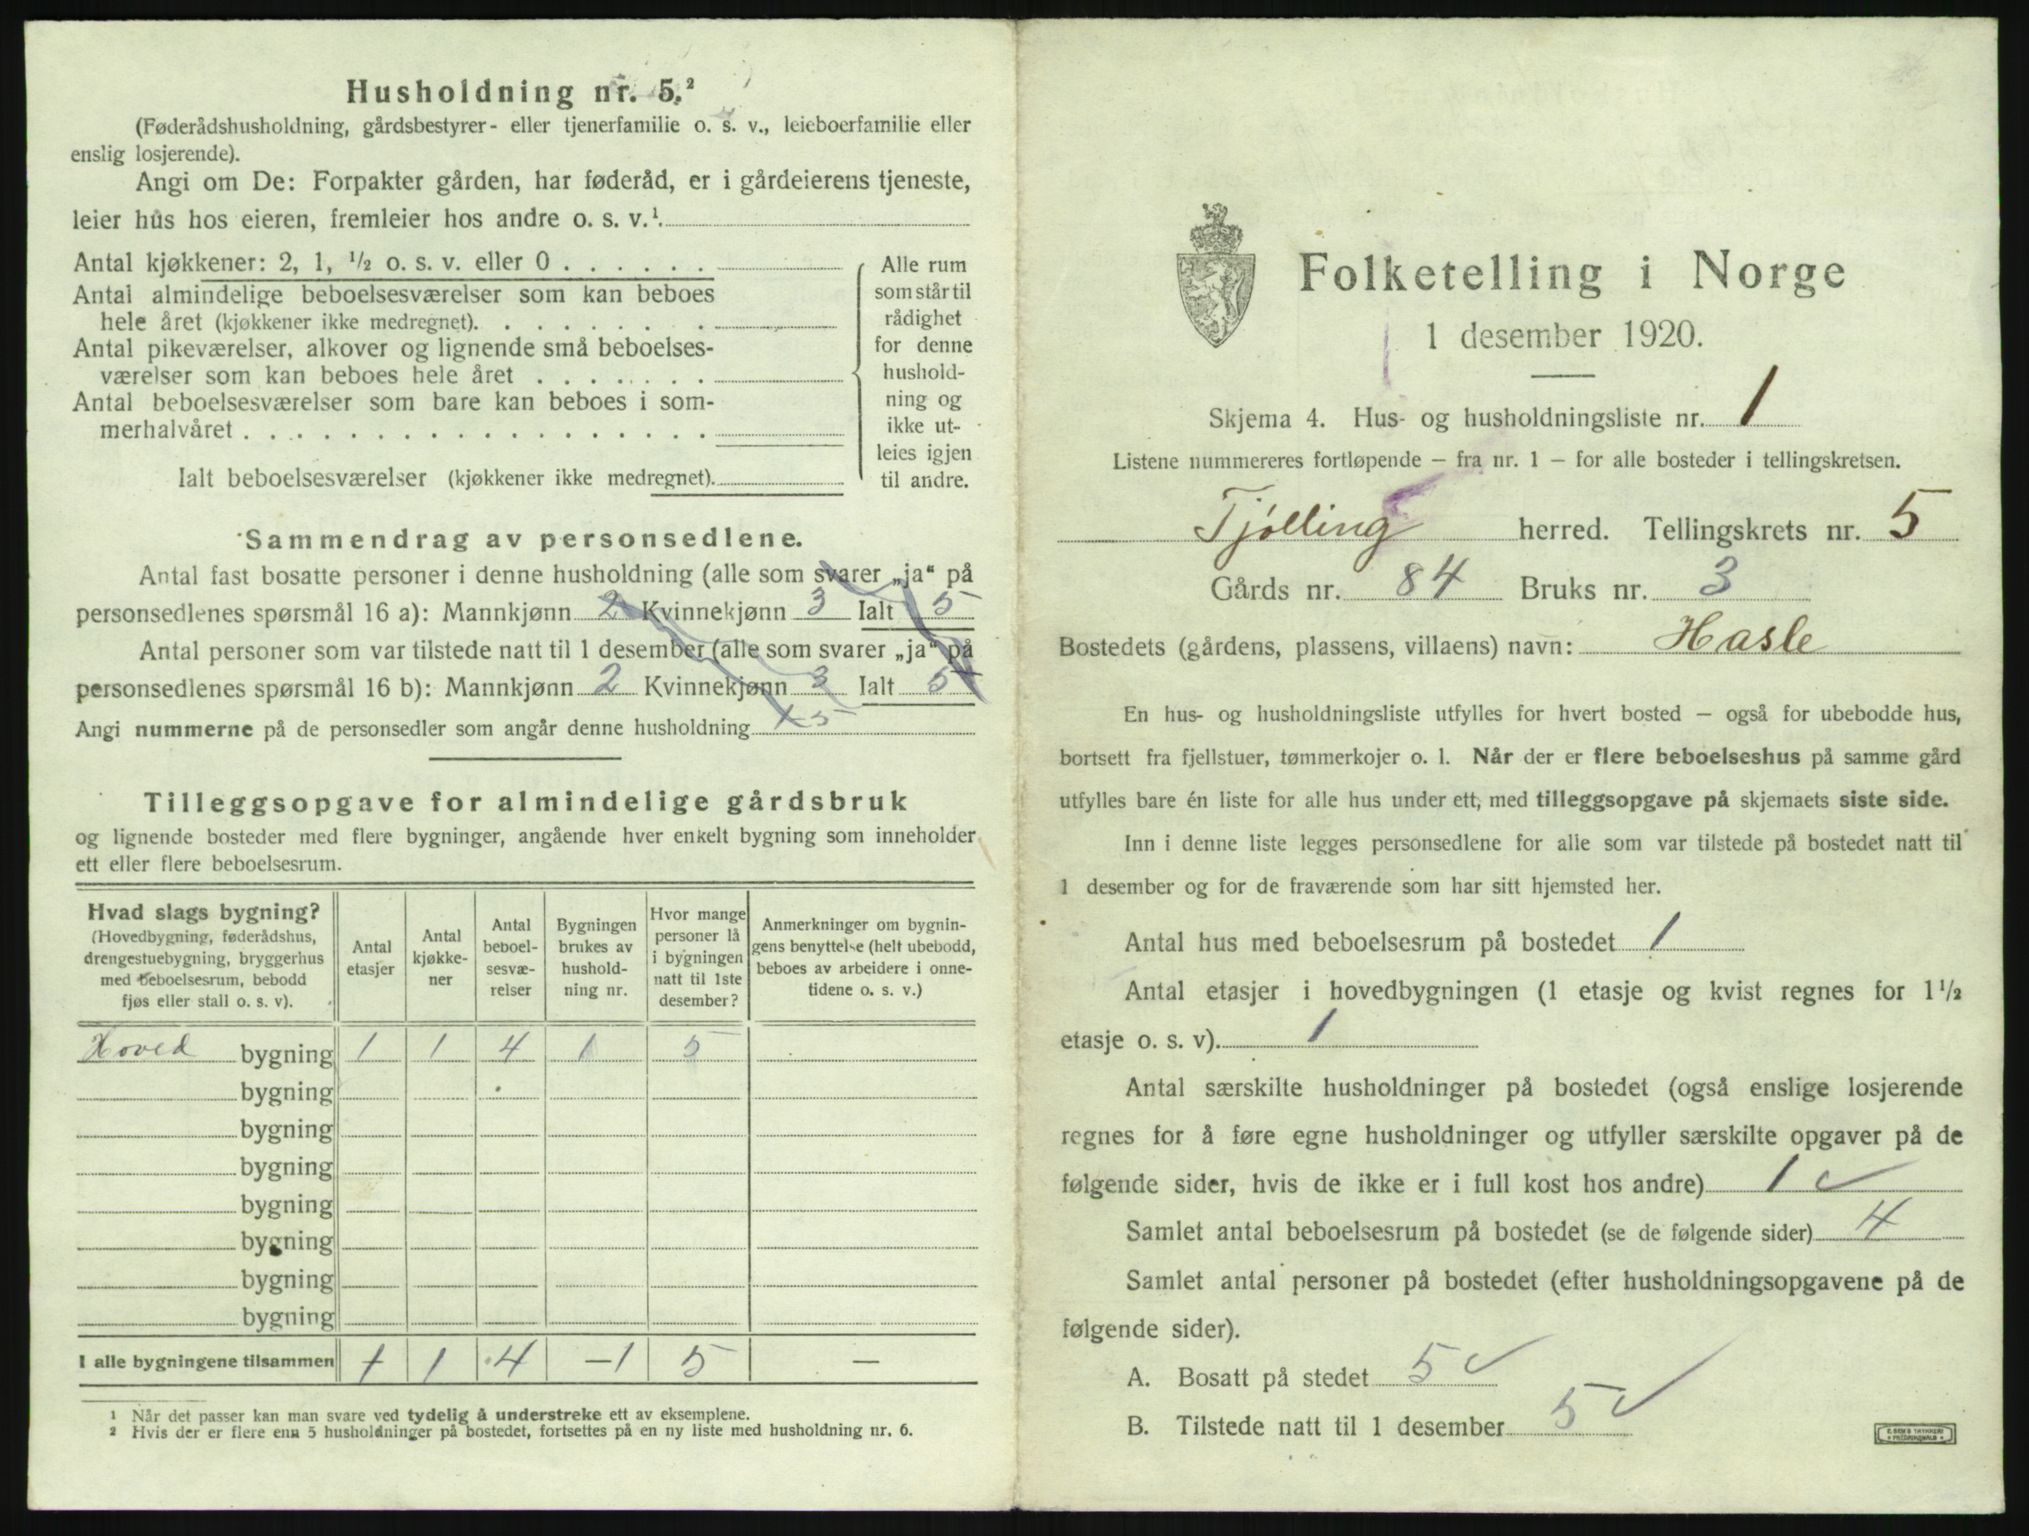 Husholdning nr. 5.²
(Føderådshusholdning, gårdsbestyrer- eller tjenerfamilie o. s. v., leieboerfamilie eller
enslig losjerende).
Angi om De: Forpakter gården, har føderåd, er i gårdeierens tjeneste,
leier hus hos eieren, fremleier hos andre o. s. v.¹.
Antal kjøkkener: 2, 1, ½ o. s. v. eller 0 . . . . . .
Antal almindelige beboelsesværelser som kan beboes
hele året (kjøkkener ikke medregnet). . . . . . . . .
Antal pikeværelser, alkover og lignende små beboelses-
værelser som kan beboes hele året . . . . . . .
Antal beboelsesværelser som bare kan beboes i som-
merhalvåret . . . . . . . . . . . . . . . . . .
Ialt beboelsesværelser (kjøkkener ikke medregnet).
Alle rum
som står til
rådighet
for denne
hushold-
ning og
ikke ut-
leies igjen
til andre.
Sammendrag av personsedlene.
Antal fast bosatte personer i denne husholdning (alle som svarer „ja“ på
personsedlenes spørsmål 16 a): Mannkjønn 2 Kvinnekjønn 3 Ialt 5
Antal personer som var tilstede natt til 1 desember (alle som svarer „ja“ på
personsedlenes spørsmål 16 b): Mannkjønn 2 Kvinnekjønn 3 Ialt 5
Angi nummerne på de personsedler som angår denne husholdning 5
Tilleggsopgave for almindelige gårdsbruk
og lignende bosteder med flere bygninger, angående hver enkelt bygning som inneholder
ett eller flere beboelsesrum.
Hvad slags bygning?
(Hovedbygning, føderådshus,
drengestuebygning, bryggerhus
med beboelsesrum, bebodd
fjøs eller stall o. s. v).
Antal
etasjer
Antal
kjøkke-
ner
Antal
beboel-
sesvæ-
relser
Bygningen
brukes av
hushold-
ning nr.
Hvor mange
personer lå
i bygningen
natt til 1ste
desember?
Anmerkninger om bygnin-
gens benyttelse (helt ubebodd,
beboes av arbeidere i onne-
tidene o. s. v.)
Hoved bygning 1 1 4 1 5
bygning
bygning
bygning
bygning
bygning
bygning
bygning
I alle bygningene tilsammen 1 1 4 — 1 5 —
¹ Når det passer kan man svare ved tydelig å understreke ett av eksemplene.
² Hvis der er flere enn 5 husholdninger på bostedet, fortsettes på en ny liste med husholdning nr. 6.
Folketelling i Norge
1 desember 1920.
Skjema 4. Hus- og husholdningsliste nr. 1
Listene nummereres fortløpende — fra nr. 1 — for alle bosteder i tellingskretsen.
Tjølling herred. Tellingskrets nr. 5
Gårds nr. 84 Bruks nr. 3
Bostedets (gårdens, plassens, villaens) navn: Hasle
En hus- og husholdningsliste utfylles for hvert bosted — også for ubebodde hus,
bortsett fra fjellstuer, tømmerkojer o. l. Når der er flere beboelseshus på samme gård
utfylles bare én liste for alle hus under ett, med tilleggsopgave på skjemaets siste side.
Inn i denne liste legges personsedlene for alle som var tilstede på bostedet natt til
1 desember og for de fraværende som har sitt hjemsted her.
Antal hus med beboelsesrum på bostedet 1
Antal etasjer i hovedbygningen (1 etasje og kvist regnes for 1½
etasje o. s. v). 1
Antal særskilte husholdninger på bostedet (også enslige losjerende
regnes for å føre egne husholdninger og utfyller særskilte opgaver på de
følgende sider, hvis de ikke er i full kost hos andre) 1 ✓
Samlet antal beboelsesrum på bostedet (se de følgende sider) 4
Samlet antal personer på bostedet (efter husholdningsopgavene på de
følgende sider).
A. Bosatt på stedet 5 ✓
B. Tilstede natt til 1 desember 5 ✓